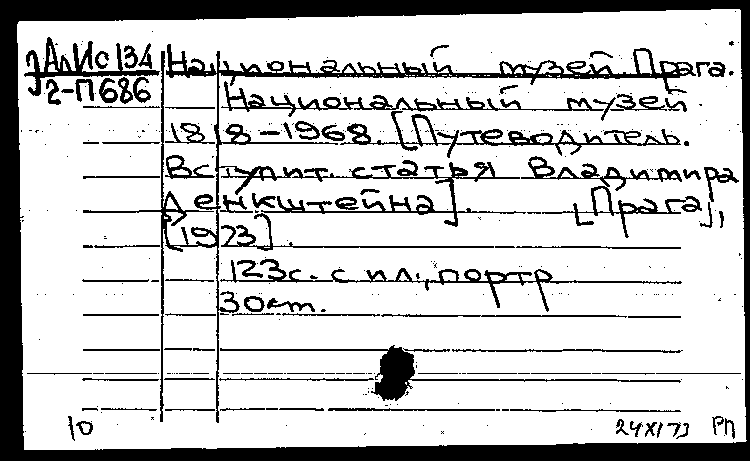 АлИс134
2-П686
Национальный музей. Прага.
Национальный музей
1818-1968. [Путеводитель.
Вступит. статья Владимира
Денкштейна]. [Прага],
[1973].
123с. с ил., портр
30см.
10
24 XI 73 РП